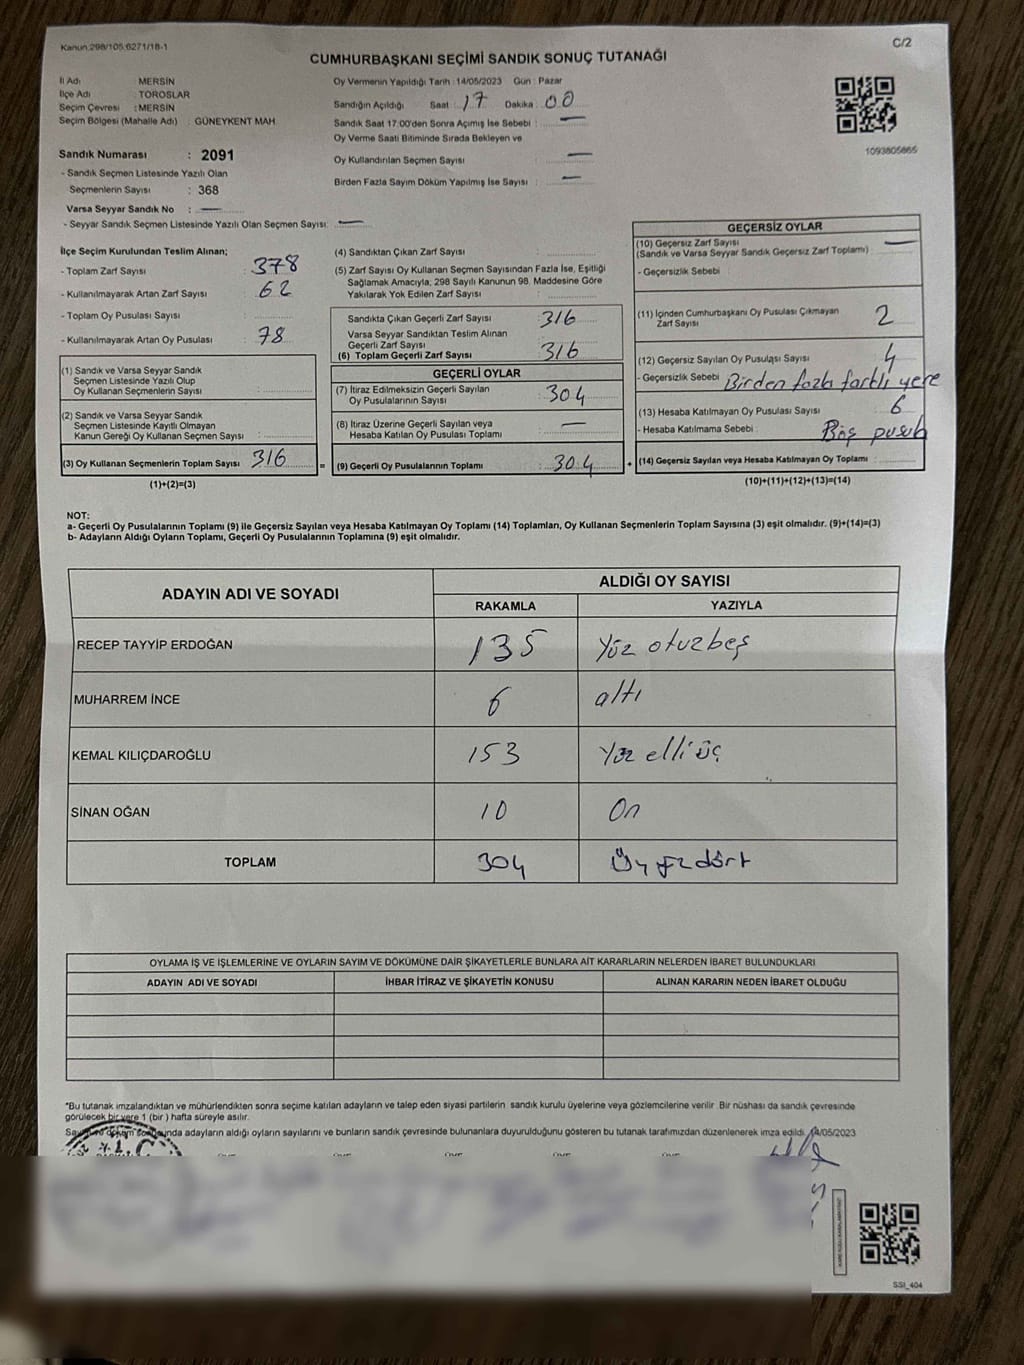 Kanun:298/105;6271/18-1
C/2
CUMHURBAŞKANI SEÇİMİ SANDIK SONUÇ TUTANAĞI
İl Adı : MERSİN
İlçe Adı : TOROSLAR
Seçim Çevresi : MERSİN
Seçim Bölgesi (Mahalle Adı) : GÜNEYKENT MAH.
Oy Vermenin Yapıldığı Tarih :14/05/2023 Gün : Pazar
Sandığın Açıldığı Saat : 17 Dakika : 00
Sandık Saat 17:00'den Sonra Açımış İse Sebebi : —
Oy Verme Saati Bitiminde Sırada Bekleyen ve
Oy Kullandırılan Seçmen Sayısı : —
Birden Fazla Sayım Döküm Yapılmış İse Sayısı : —
1093805865
Sandık Numarası : 2091
- Sandık Seçmen Listesinde Yazılı Olan
Seçmenlerin Sayısı : 368
Varsa Seyyar Sandık No : —
- Seyyar Sandık Seçmen Listesinde Yazılı Olan Seçmen Sayısı: —
İlçe Seçim Kurulundan Teslim Alınan;
- Toplam Zarf Sayısı : 378
- Kullanılmayarak Artan Zarf Sayısı : 62
- Toplam Oy Pusulası Sayısı :
- Kullanılmayarak Artan Oy Pusulası : 78
(1) Sandık ve Varsa Seyyar Sandık
Seçmen Listesinde Yazılı Olup
Oy Kullanan Seçmenlerin Sayısı :
(2) Sandık ve Varsa Seyyar Sandık
Seçmen Listesinde Kayıtlı Olmayan
Kanun Gereği Oy Kullanan Seçmen Sayısı :
(3) Oy Kullanan Seçmenlerin Toplam Sayısı : 316 =
(1)+(2)=(3)
(4) Sandıktan Çıkan Zarf Sayısı :
(5) Zarf Sayısı Oy Kullanan Seçmen Sayısından Fazla İse, Eşitliği
Sağlamak Amacıyla; 298 Sayılı Kanunun 98. Maddesine Göre
Yakılarak Yok Edilen Zarf Sayısı :
Sandıkta Çıkan Geçerli Zarf Sayısı : 316
Varsa Seyyar Sandıktan Teslim Alınan
Geçerli Zarf Sayısı :
(6) Toplam Geçerli Zarf Sayısı : 316
GEÇERLİ OYLAR
(7) İtiraz Edilmeksizin Geçerli Sayılan
Oy Pusulalarının Sayısı : 304
(8) İtiraz Üzerine Geçerli Sayılan veya
Hesaba Katılan Oy Pusulası Toplamı : —
(9) Geçerli Oy Pusulalarının Toplamı : 304 +
GEÇERSİZ OYLAR
(10) Geçersiz Zarf Sayısı : —
(Sandık ve Varsa Seyyar Sandık Geçersiz Zarf Toplamı)
- Geçersizlik Sebebi :
(11) İçinden Cumhurbaşkanı Oy Pusulası Çıkmayan
Zarf Sayısı : 2
(12) Geçersiz Sayılan Oy Pusulası Sayısı : 4
- Geçersizlik Sebebi : Birden fazla farklı yere
(13) Hesaba Katılmayan Oy Pusulası Sayısı : 6
- Hesaba Katılmama Sebebi : Boş pusula
(14) Geçersiz Sayılan veya Hesaba Katılmayan Oy Toplamı :
(10)+(11)+(12)+(13)=(14)
NOT:
a- Geçerli Oy Pusulalarının Toplamı (9) ile Geçersiz Sayılan veya Hesaba Katılmayan Oy Toplamı (14) Toplamları, Oy Kullanan Seçmenlerin Toplam Sayısına (3) eşit olmalıdır. (9)+(14)=(3)
b- Adayların Aldığı Oyların Toplamı, Geçerli Oy Pusulalarının Toplamına (9) eşit olmalıdır.
ADAYIN ADI VE SOYADI
ALDIĞI OY SAYISI
RAKAMLA YAZIYLA
RECEP TAYYİP ERDOĞAN 135 Yüz otuzbeş
MUHARREM İNCE 6 altı
KEMAL KILIÇDAROĞLU 153 Yüz elli üç
SİNAN OĞAN 10 On
TOPLAM 304 Üçyüzdört
OYLAMA İŞ VE İŞLEMLERİNE VE OYLARIN SAYIM VE DÖKÜMÜNE DAİR ŞİKAYETLERLE BUNLARA AİT KARARLARIN NELERDEN İBARET BULUNDUKLARI
ADAYIN ADI VE SOYADI İHBAR İTİRAZ VE ŞİKAYETİN KONUSU ALINAN KARARIN NEDEN İBARET OLDUĞU
*Bu tutanak imzalandıktan ve mühürlendikten sonra seçime katılan adayların ve talep eden siyasi partilerin sandık kurulu üyelerine veya gözlemcilerine verilir. Bir nüshası da sandık çevresinde
görülecek bir yere 1 (bir) hafta süreyle asılır.
adayların aldığı oyların sayılarını ve bunların sandık çevresinde bulunanlara duyurulduğunu gösteren bu tutanak tarafımızdan düzenlenerek imza edildi. 14/05/2023
T.C.
SSI_404